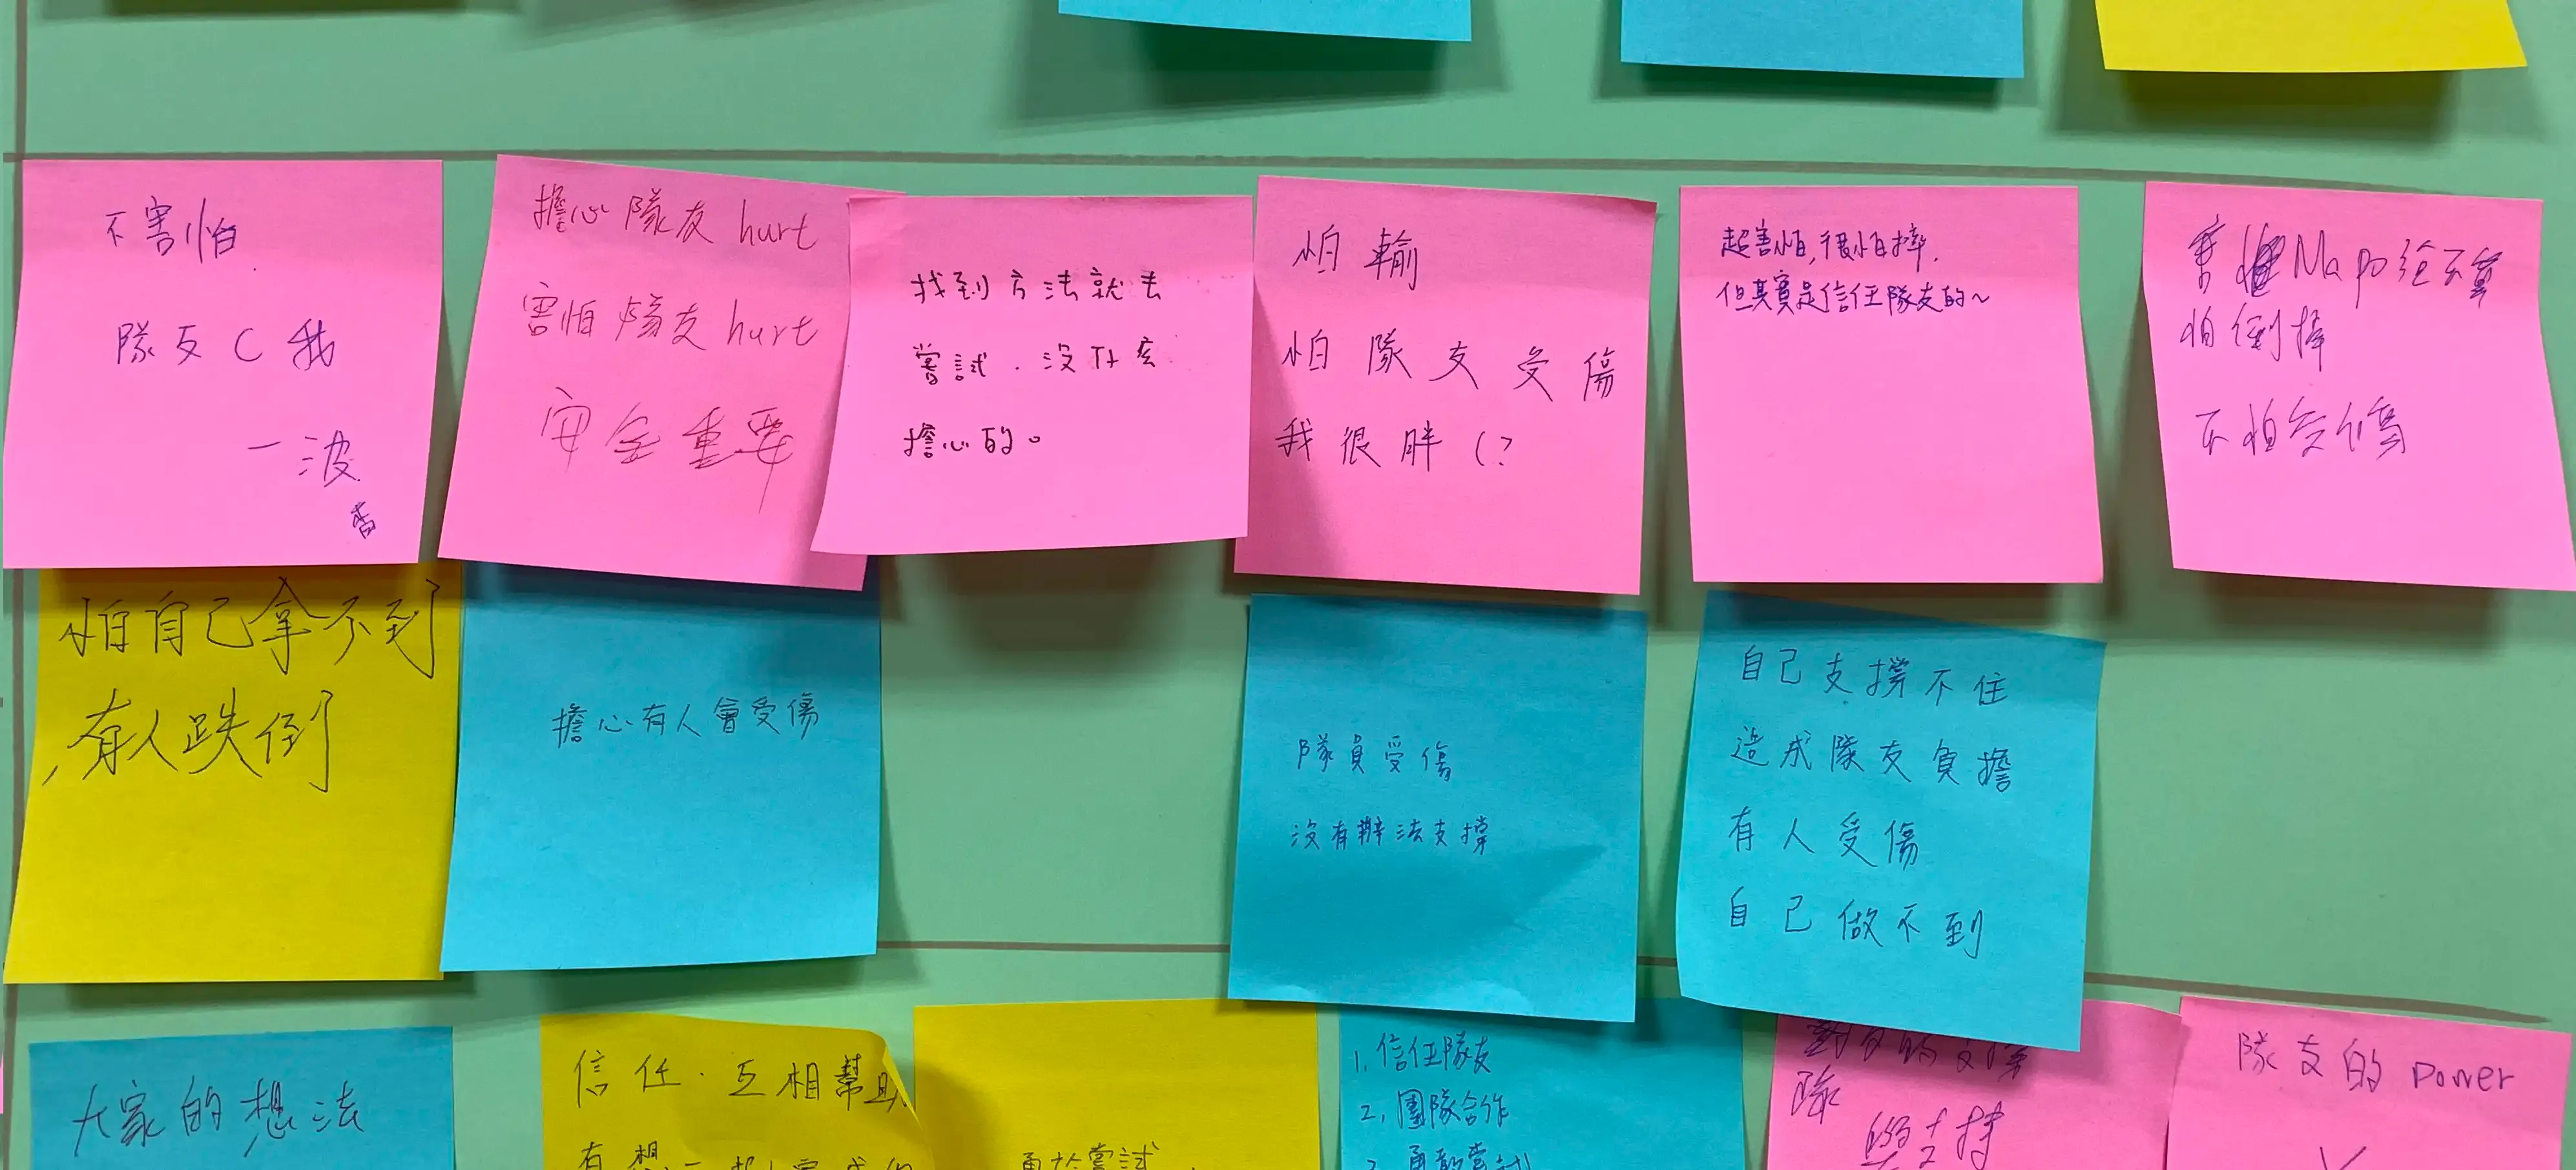 不害怕
隊友 C 我
一波
擔心隊友 hurt
害怕隊友 hurt
安全重要
找到方法就去
嘗試．沒什么
擔心的。
怕輸
怕隊友受傷
我很胖（?
超害怕,很怕摔.
但其實是信任隊友的~
怕倒摔
不怕受傷
怕自己拿不到
有人跌倒
擔心有人會受傷
隊員受傷
沒有辦法支撐
自己支撐不住
造成隊友負擔
有人受傷
自己做不到
大家的想法
信任．互相幫助
勇於嘗試
1. 信任隊友
2. 團隊合作
隊
隊友的 power